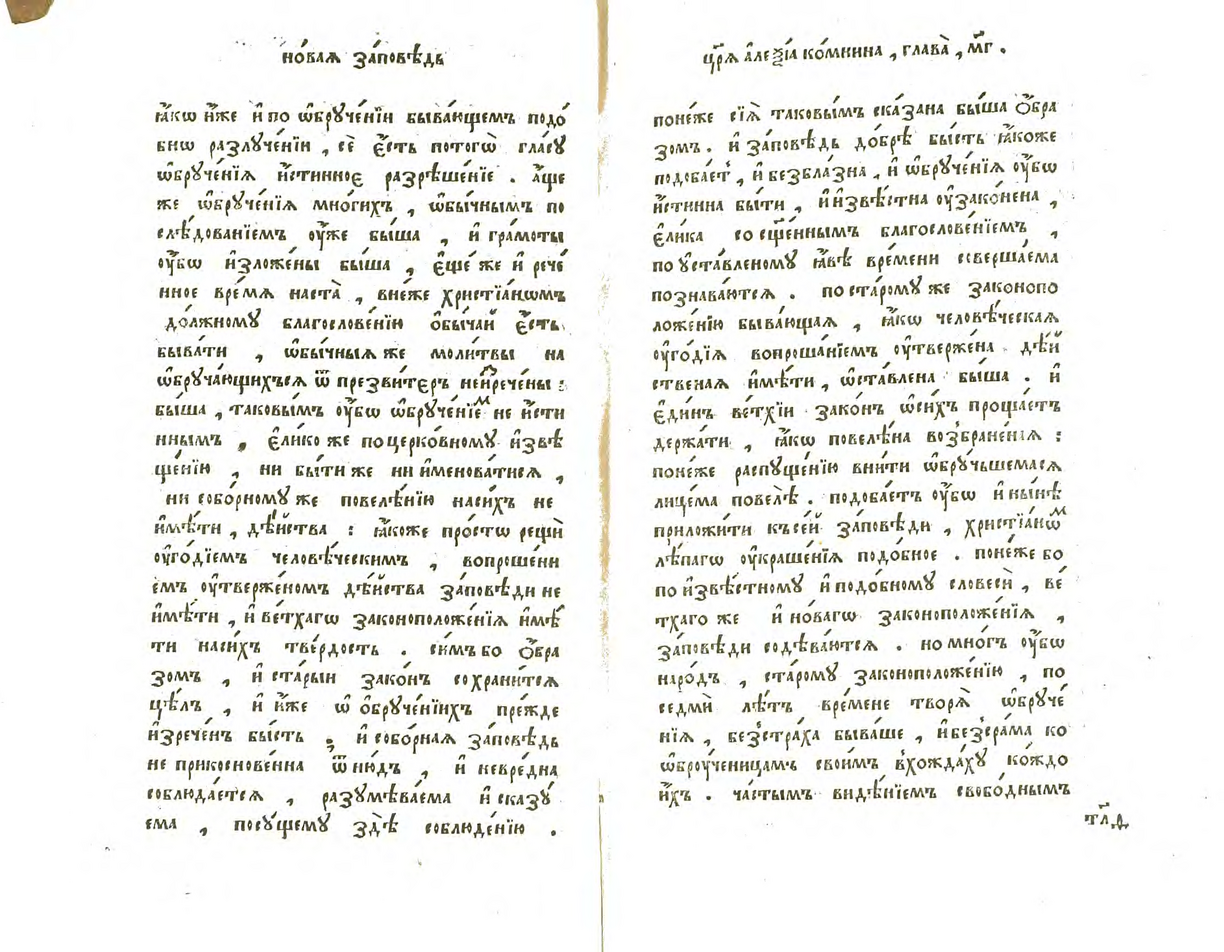 но́ваѧ за́повѣдь
ꙗ҆́кѡ и҆́же и҆ по ѡ҆брꙋче́нїи быва́ющемъ подо́
бнѡ разлꙋче́нїи , сѐ є҆́сть потогѡ̀ гла́сꙋ
ѡ҆брꙋче́нїѧ и҆́стинноє разрѣше́нїе . а҆́ще
же ѡ҆брꙋче́нїѧ мно́гихъ , ѡ҆бы́чнымъ по
слѣ́дованїемъ ᲂу҆́же бы́ша , и҆ гра́моты
ᲂу҆́бѡ и҆зложе́ны бы́ша , є҆ще́ же и҆ рече́
нное вре́мѧ наста̀ , вне́же христїа́нѡмъ
до́лжномꙋ благослове́нїю ѻ҆бы́чай є҆́сть
быва́ти , ѡ҆бы́чныѧ же моли́твы на
ѡ҆брꙋча́ющихъсѧ ѿ презви́теръ неи҆зрече́ны :
бы́ша , таковы́мъ ᲂу҆́бѡ ѡ҆брꙋче́нїемъ не и҆́сти
ннымъ , є҆ли́ко же поцерко́вномꙋ и҆звѣ
ще́нїю , ни бы́ти же ни и҆менова́тисѧ ,
ни собо́рномꙋ же повелѣ́нїю наси́хъ не
и҆мѣ́ти , дѣ́йства : ꙗ҆́коже про́стѡ рещѝ
ᲂу҆го́дїемъ человѣ́ческимъ , вопроше́ни
емъ ᲂу҆тверже́номъ дѣ́йства за́повѣди не
и҆мѣ́ти , и҆ ве́тхагѡ законоположе́нїѧ и҆мѣ́
ти наси́хъ тве́рдость . си́мъ бо ѻ҆́бра
зомъ , и҆ ста́рыи зако́нъ сохрани́тсѧ
цѣ́лъ , и҆ и҆́же ѡ҆ ѻ҆брꙋче́нїихъ пре́жде
и҆зрече́нъ бы́сть ; и҆ собо́рнаѧ за́повѣдь
не прикоснове́нна ѿню́дъ , и҆ невре́дна
соблюда́етсѧ , разꙋмѣва́ема и҆ сказꙋ́
ема , посꙋ́щемꙋ здѣ̀ соблюде́нїю .
цр҃ѧ̀ а҆леѯі́а ко́мнина , глава̀ , м҃г .
поне́же сїѧ̀ таковы́мъ ска́зана бы́ша ѻ҆́бра
зомъ . и҆ за́повѣдь до́брѣ бы́сть ꙗ҆́коже
подоба́етъ , и҆ безбла́зна , и҆ ѡ҆брꙋче́нїѧ ᲂу҆́бѡ
и҆́стинна бы́ти , и҆ и҆звѣ́стна ᲂу҆зако́нена ,
є҆ли́ка со сщ҃е́ннымъ благослове́нїемъ ,
по ᲂу҆ста́вленомꙋ ꙗ҆́вѣ вре́мени соверша́ема
познава́ютсѧ . по ста́ромꙋ же законопо
ложе́нїю быва́ющаѧ , ꙗ҆́кѡ человѣ́ческаѧ
ᲂу҆го́дїѧ вопроша́нїемъ ᲂу҆твержена̀ дѣ́й
ственаѧ и҆мѣ́ти , ѡ҆ста́влена бы́ша . и҆
є҆ди́нъ ве́тхїи зако́нъ ѡ҆си́хъ проща́етъ
держа́ти , ꙗ҆́кѡ повелѣ́на возбране́нїѧ :
поне́же распꙋще́нїю вни́ти ѡ҆брꙋ́чьшемасѧ
лице́ма повелѣ̀ . подоба́етъ ᲂу҆́бѡ и҆ ны́нѣ
приложи́ти къ се́й за́повѣди , христїа́нѡмъ
лѣ́пагѡ ᲂу҆краше́нїѧ подо́бное . поне́же бо
по и҆звѣ́стномꙋ и҆ подо́бномꙋ словесѝ , ве́
тхаго же и҆ но́вагѡ законоположе́нїѧ ,
за́повѣди содѣва́ютсѧ . но мно́гъ ᲂу҆́бѡ
наро́дъ , ста́ромꙋ законоположе́нїю , по
седмѝ лѣ́тъ вре́мене творѧ̀ ѡ҆брꙋче́
нїѧ , без̾стра́ха быва́ше , и҆ без̾сра́ма ко
ѡ҆броу́ченицамъ свои́мъ вхожда́хꙋ ко́ждо
и҆́хъ . ча́стымъ ви́дѣнїемъ свобо́днымъ
тл҃д